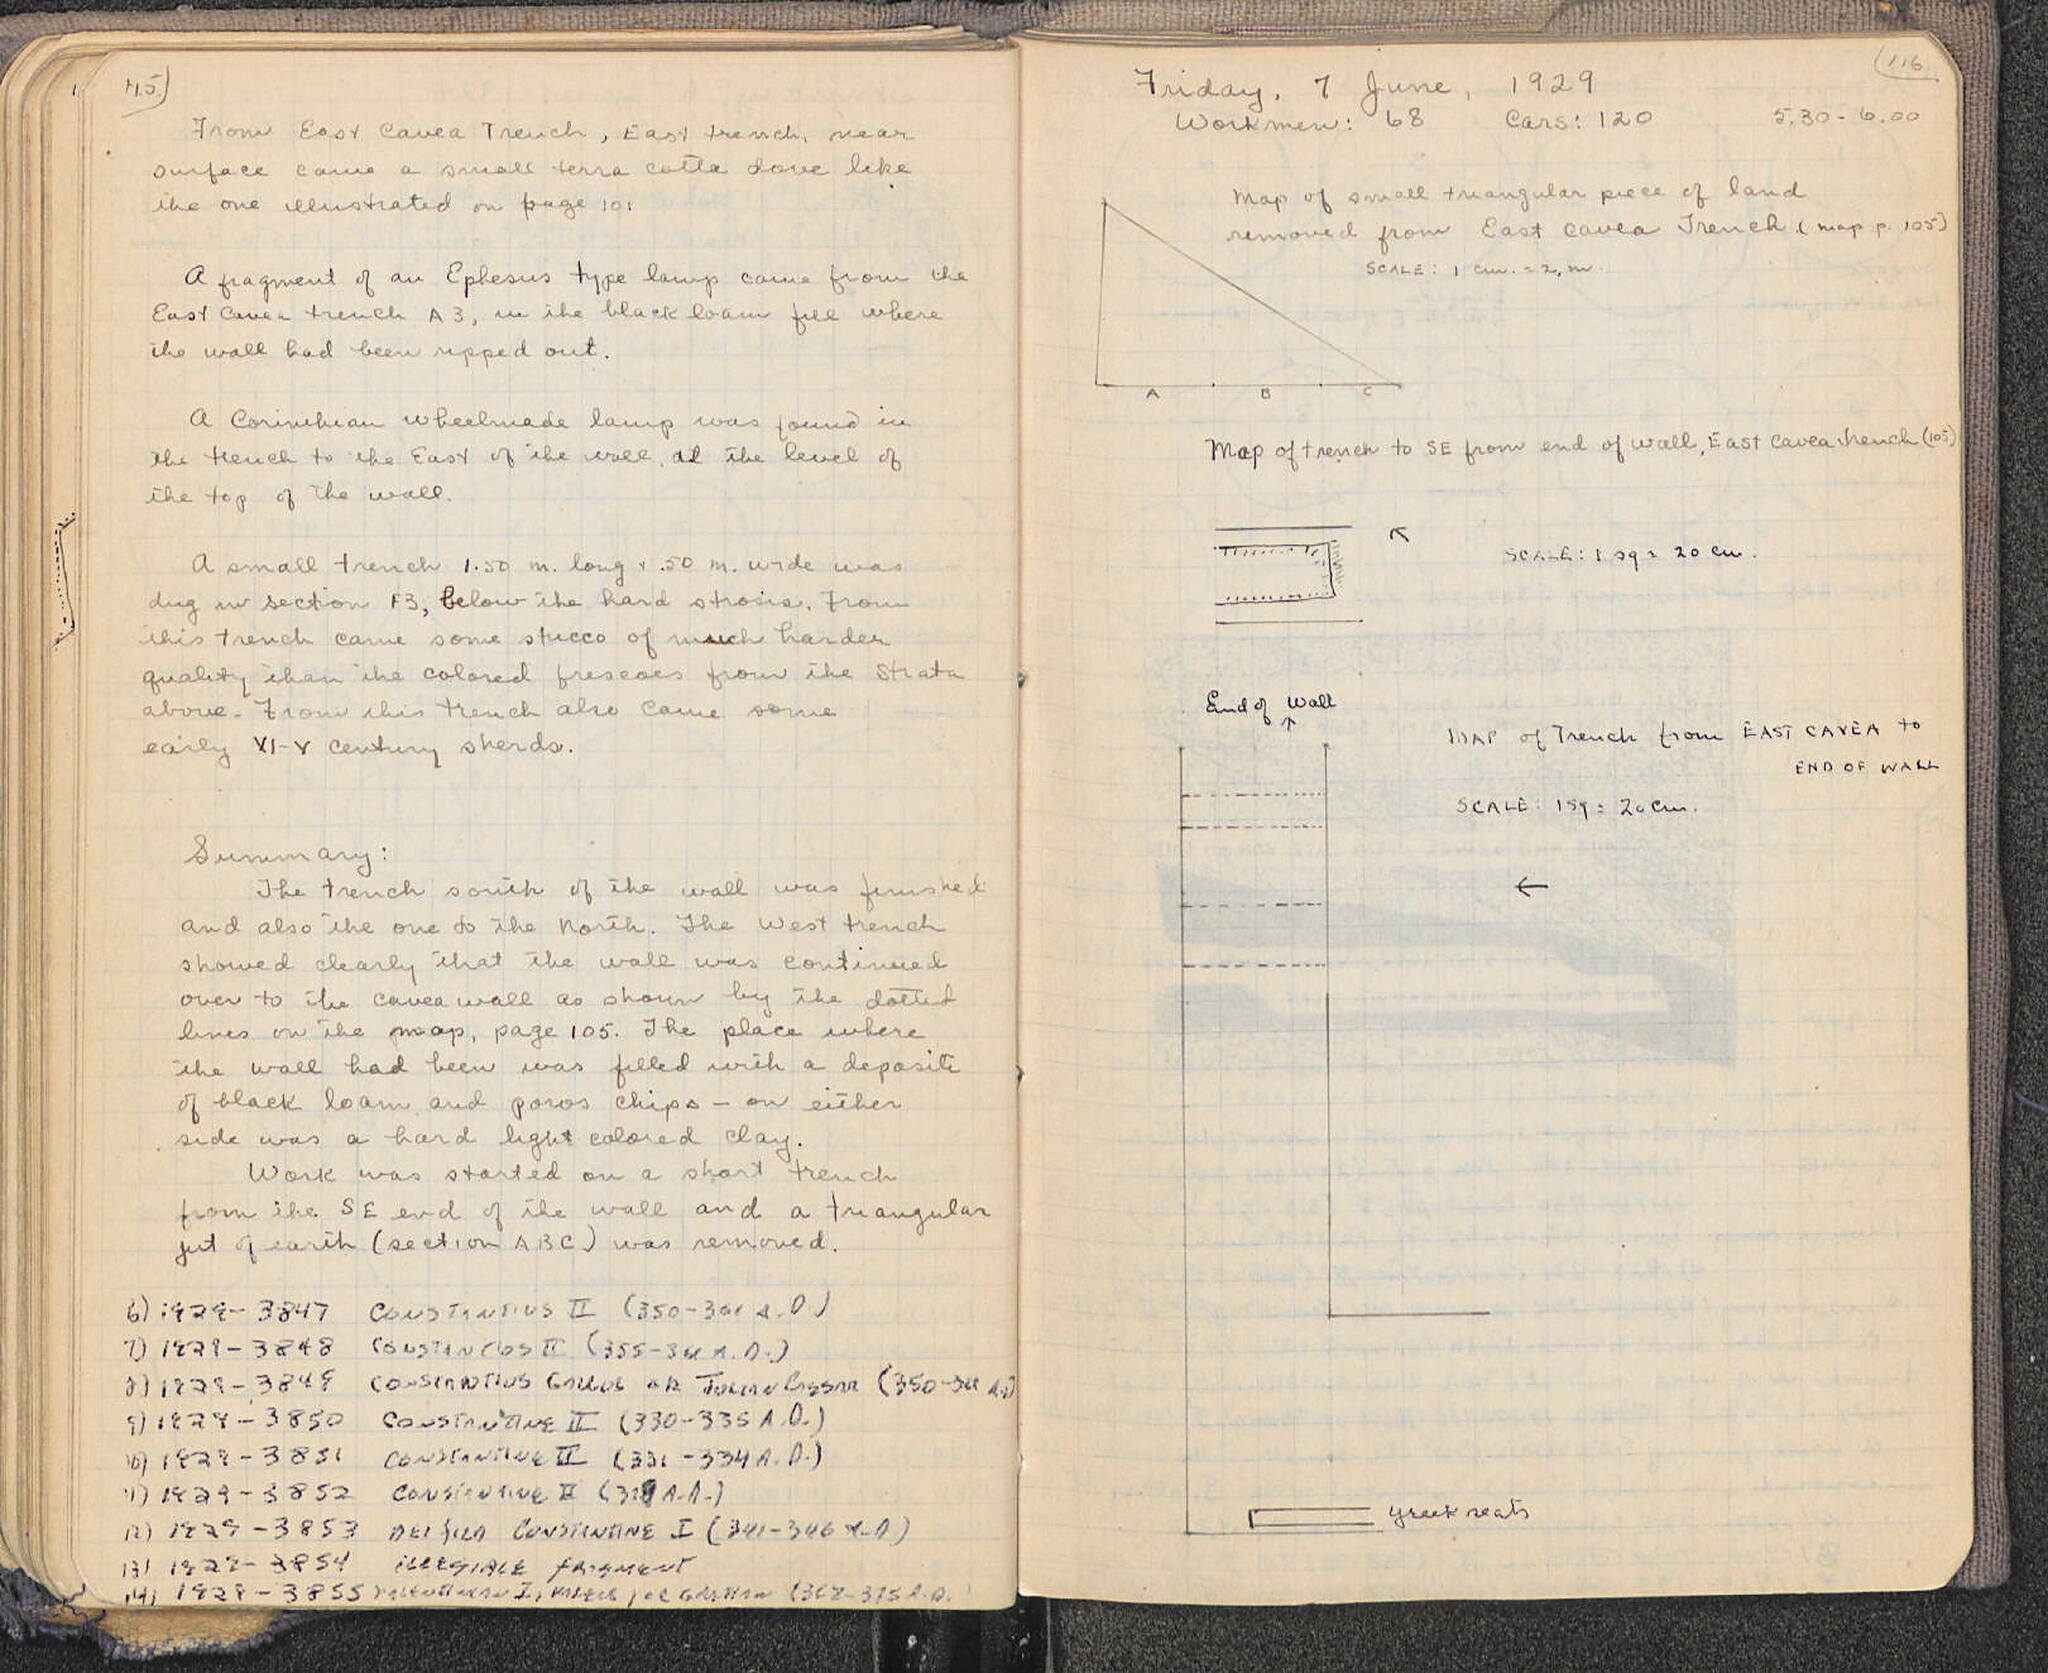 115)
From East Cavea Trench, East trench, near
surface came a small terra cotta dove like
the one illustrated on page 101
A fragment of an Ephesus type lamp came from the
East Cavea trench A3, in the black loam fill where
the wall had been ripped out.
A Corinthian wheelmade lamp was found in
the trench to the East of the wall, at the level of
the top of the wall.
A small trench 1.50 m. long x .50 m. wide was
dug in section F3, below the hard strosis. From
this trench came some stucco of much harder
quality than the colored frescoes from the strata
above. From this trench also came some
early VI-V century sherds.
Summary:
The trench south of the wall was finished
and also the one to the North. The West trench
showed clearly that the wall was continued
over to the cavea wall as shown by the dotted
lines on the map, page 105. The place where
the wall had been was filled with a deposit
of black loam and poros chips – on either
side was a hard light colored clay.
Work was started on a short trench
from the SE end of the wall and a triangular
jut of earth (section ABC) was removed.
6) 1929-3847 Constantius II (350-361 A.D.)
7) 1929-3848 Constantius II (355-361 A.D.)
8) 1929-3849 Constantius Gallus or Julian Caesar (350-361 A.D)
9) 1929-3850 Constantine II (330-335 A.D.)
10) 1929-3851 Constantine II (331-334 A.D.)
11) 1929-3852 Constantine II (A.D.)
12) 1929-3853 Deified Constantine I (341-346 A.D)
13) 1929-3854 illegible fragment
14) 1929-3855 Valentinian I, Valens, or Gratian (A.D.
116
Friday, 7 June, 1929
Workmen: 68 Cars: 120 5.30-6.00
Map of small triangular piece of land
removed from East Cavea Trench (map p. 105)
SCALE: 1 cm. = 2 m.
A B C
Map of trench to SE from end of wall, East Cavea trench (105)
SCALE: 1 sq = 20 cm.
End of Wall
MAP of Trench from EAST CAVEA to
END OF WALL
SCALE: 1 sq = 20 cm.
Greek seats